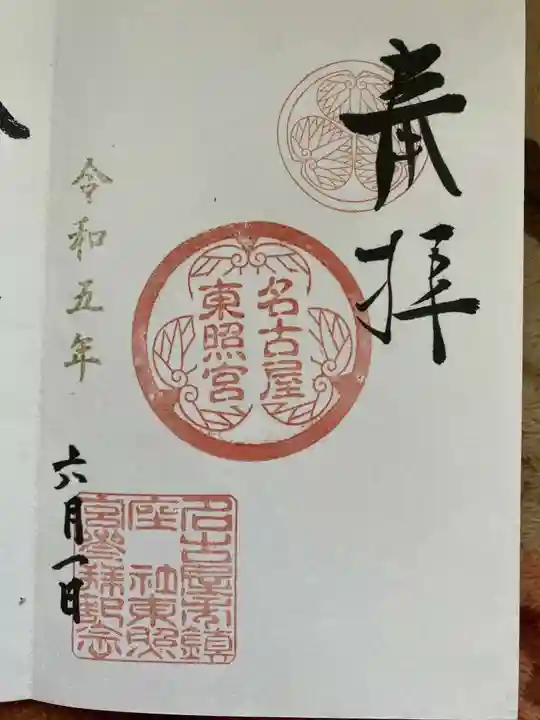 奉拝
名古屋
東照宮
令和五年
六月一日
名古屋市鎮
座 社東照
宮参拝記念